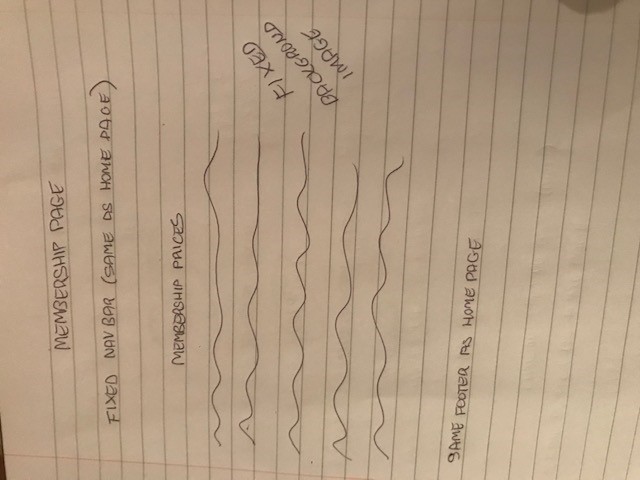 MEMBERSHIP PAGE
FIXED NAV BAR (SAME AS HOME PAGE)
MEMBERSHIP PRICES
FIXED
BACKGROND
IMAGE
SAME FOOTER AS HOME PAGE